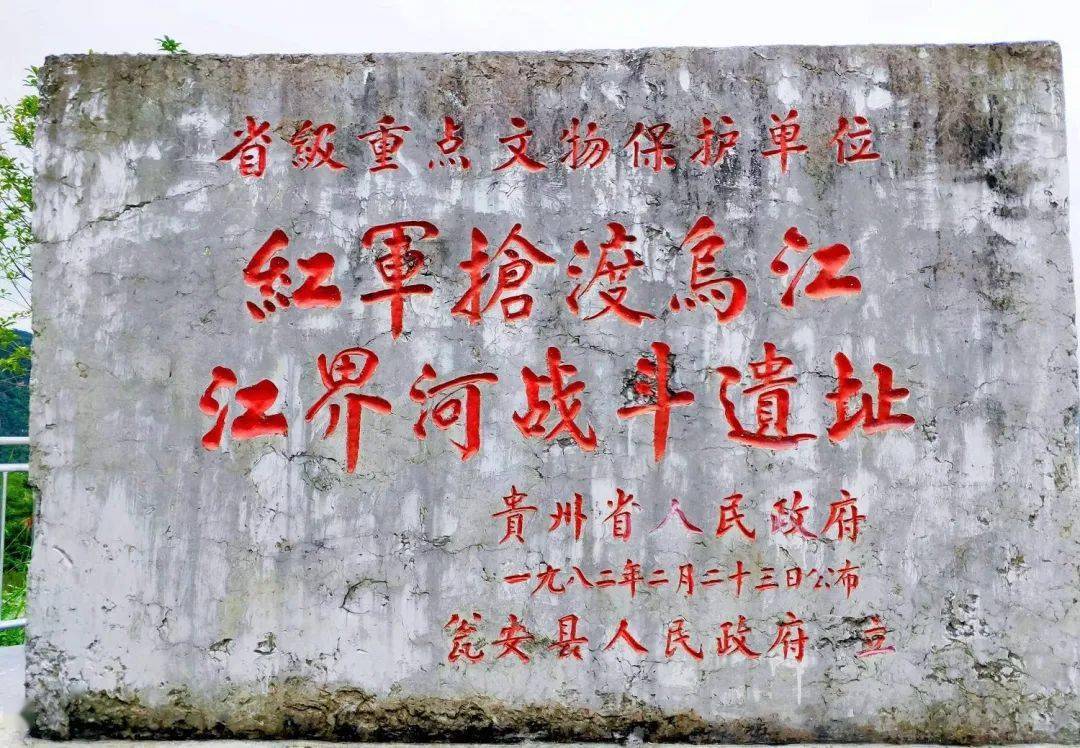 省級重点文物保护单位
紅軍搶渡烏江
江界河战斗遺址
貴州省人民政府
一九八二年二月二十三日公布
瓮安县人民政府 立